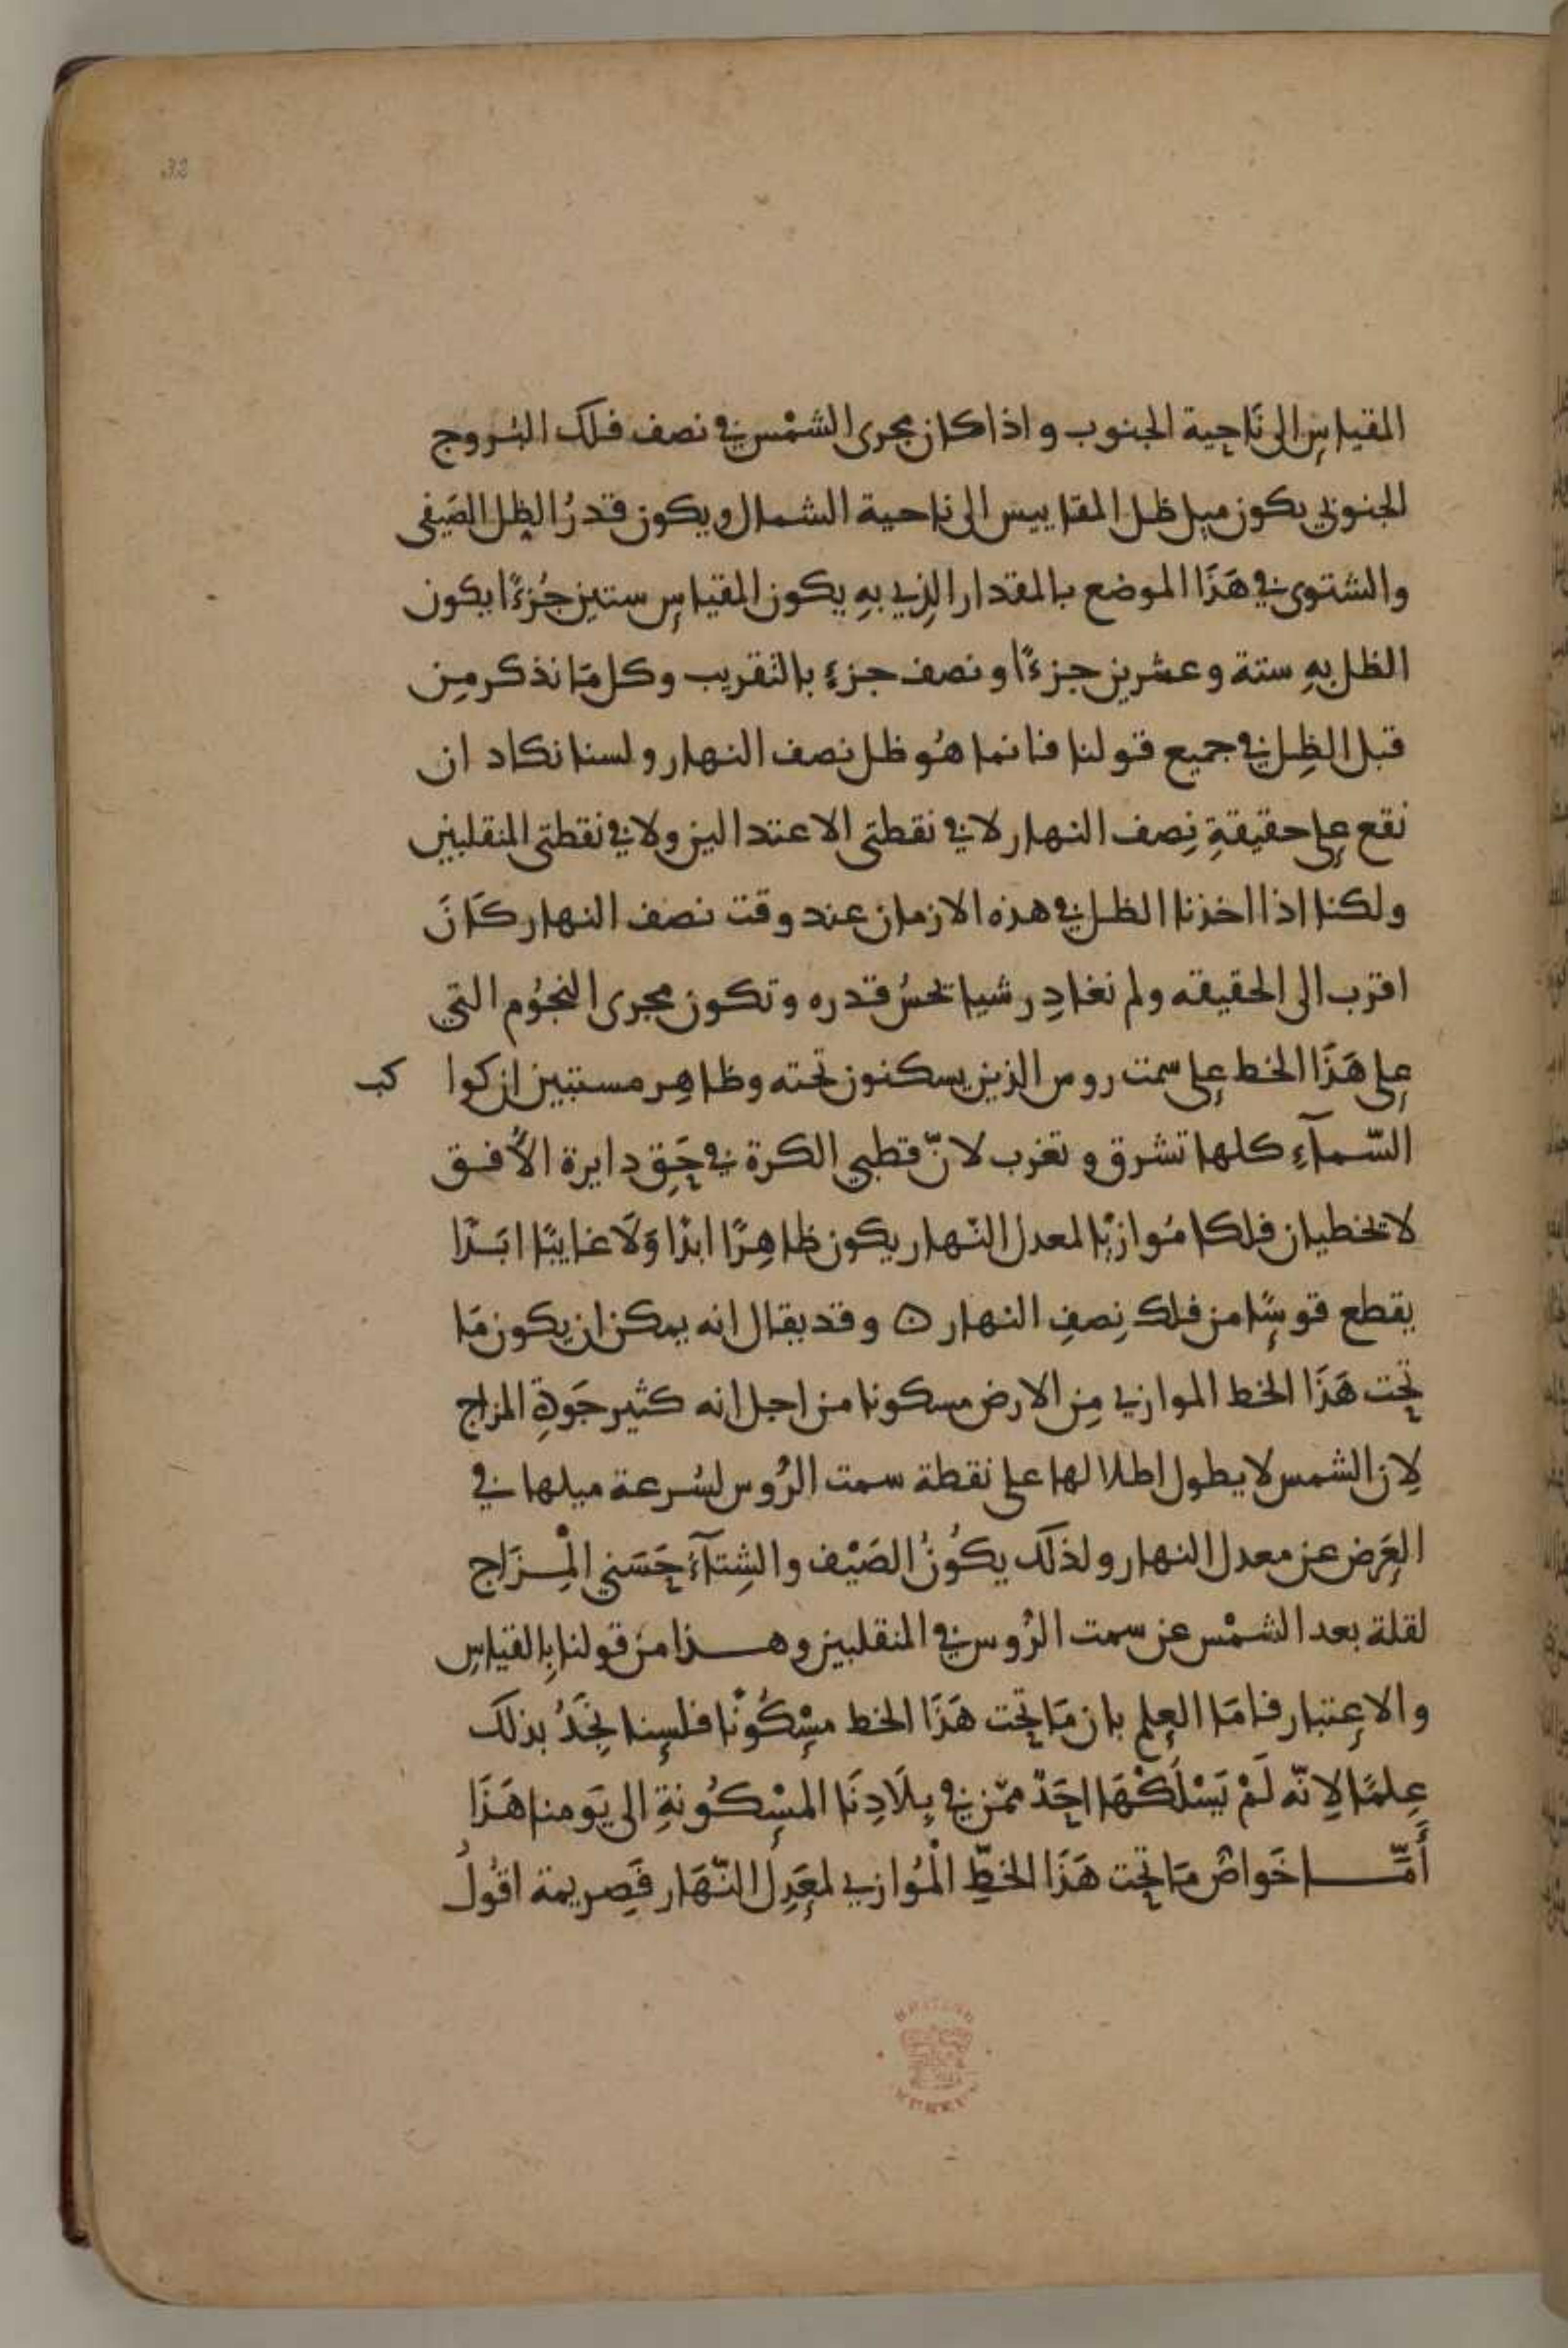 32
المقياسِ الى نَاحِية الجنوب واذا كان مجرى الشمْس في نصف فلك البُروج
الجنوبي يكون ميل ظل المقاييس الى ناحية الشمال ويكون قدرُ الظِل الصَيفى
والشتوى في هَذَا الموضع بالمقدار الذِي بهِ يكون المقياسِ ستين جُزءًا يكون
الظل بهِ ستة وعشرين جزءًا ونصف جزءٍ بالتقريب وكل مَا نذكر مِن
قبل الظِل في جميع قولنا فانما هُو ظل نصف النهار ولسنا نكاد ان
نقع على حقيقةِ نِصف النهار لا في نقطتى الاعتدالين ولا في نقطتى المنقلبين
ولكنا اذا اخذنا الظل في هذه الازمان عند وقت نصف النهار كَانَ
اقرب الى الحقيقه ولم نغادِر شيا يُحسُ قدره وتكون مجرى النجُوم التي
على هَذَا الخط على سمت روس الذين يسكنون تحته وظاهِر مستبين ان كوا كب
السّمآءِ كلها تشرق وتغرب لانّ قطبي الكرة في حَقِ دايرة الأفق
لا تخطيان فلكا مُوازيًا لمعدل النّهار يكون ظاهِرًا ابدًا وَلَا غايبًا ابَدًا
يقطع قوسًا من فلك نِصفِ النهار ه وقد يقال انه يمكن ان يكون مَا
تحت هَذَا الخط الموازي مِن الارض مسكونا من اجل انه كثير جَودةِ المزاج
لِان الشمس لا يطول اطلالها على نقطة سمت الرُوس لسُرعة ميلها في
العَرض عن معدل النهار ولذلك يكُونُ الصَيْف والشِتآءُ حَسَني الْمِزَاج
لقلة بعد الشمْس عن سمت الرُوس في المنقلبين وهذا من قولنا بِالقياسِ
والاعتبار فامَا العلم بان مَا تحت هَذَا الخط مسْكُونًا فلسنا نجَدُ بذلك
عِلمًا لِانّه لَمْ يَسْلُكْهَا احَدٌ ممّن في بِلَادِنَا المسْكُونةِ الى يَومنا هَذَا
أمَّا خَواصُ مَا تحت هَذَا الخطِّ الْمُوازي لمعَدِل النّهَار فَصريمة اقُولُ